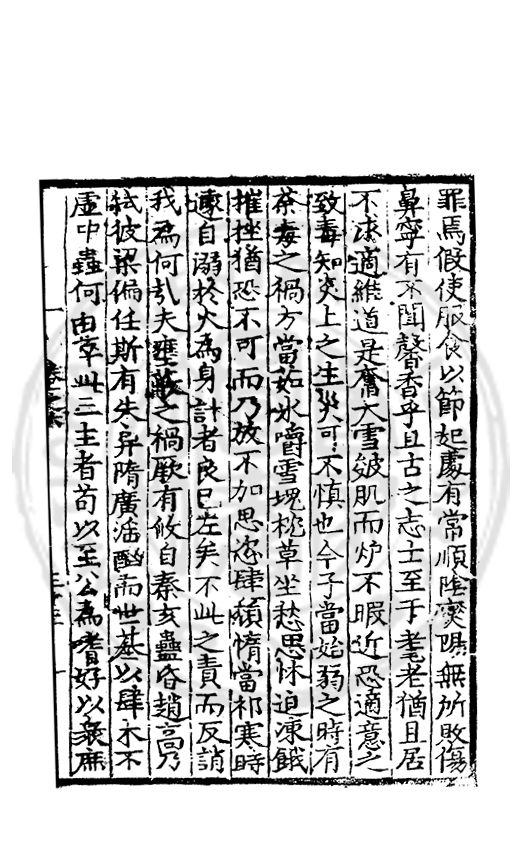 罪焉假使服食以節起處有常順陰燮陽無所敗傷
鼻寧有不聞馨香乎且古之志士至于耄老猶且居
不求適維道是奮大雪皴肌而炉不暇近恐適意之
致毒知炎上之生災可不慎也今子當始弱之時有
荼毒之禍方當茹氷嚼雪塊枕草坐愁思怵迫凍餓
摧挫猶恐不可而乃放不加思恣肆頹惰當祁寒時
遽自溺於火為身計者良已左矣不此之責而反誚
我為何弐夫壅蔽之禍厥有攸自秦亥蠱昏趙高乃
弑彼梁偏任斯有朱异隋廣滛酗而世基以肆木不
虛中蟲何由萃此三主者苟以至公為嗜好以衆庶